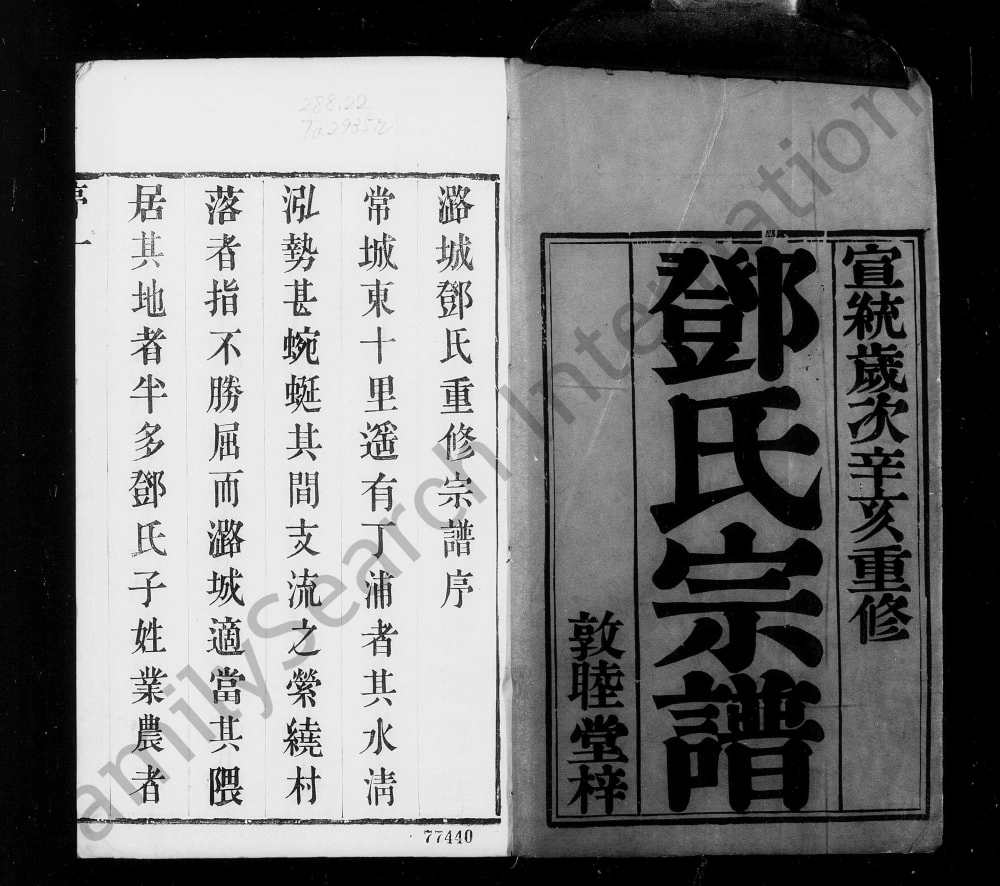 宣統歲次辛亥重修
鄧氏宗譜
敦睦堂梓
潞城鄧氏重修宗譜序
常城東十里遥有丁浦者其水清
泓勢甚蜿蜒其間支流之縈繞村
落者指不勝屈而潞城適當其隈
居其地者半多鄧氏子姓業農者
序 一
77440
288.22
FamilySearch International